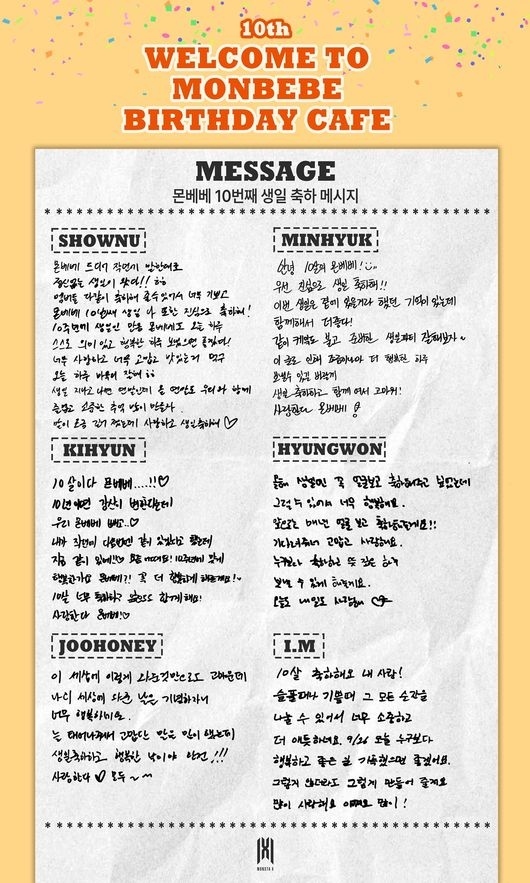 10th
WELCOME TO
MONBEBE
BIRTHDAY CAFE
MESSAGE
몬베베 10번째 생일 축하 메시지
SHOWNU
몬베베 드디어 작년에 말한대로
왔다!! ㅎㅎ
축하해 줄수있어서 너무 기쁘고
몬베베 10번째 생일 나 또한 진심으로 축하해!
10주년에 생일인 만큼 몬베베도 오늘 하루
스스로 의미 있고 행복한 하루 보냈으면 좋겠어!
너무 사랑하고 너무 고맙고
오늘 하루 ㅎㅎ
생일 지나고 나면 연말인데 올 연말도 우리와 함께
즐겁고 소중한 추억 많이 만들자.
말이 조금 길어 졌는데 사랑하고 생일축하해 ♡
MINHYUK
안녕 10살의 몬베베!
우선 진심으로 생일 축하해!!
이번 생일은 같이 있을거라 했던 기억이 있는데
함께해서 더좋다!
같이 케익도 불고 준비한 생일파티 잘해보자~
이 글로 인해 조금이나마 더 행복한 하루
보낼수 있길 바랄게
생일 축하하고 함께 여서 고마워!
사랑한다 몬베베
KIHYUN
10살이다 몬베베....!!♡
10년이면 강산이 변한다는데
우리 몬베베 ..♡
내가 작년에 다음번엔 같이 있겠다고 했는데
지금 같이 있네!! 10주년에 맞게
행복한가요 몬베베?! 꼭 더 행복하게 해줄게요!
10살 너무 축하하고 앞으로도 함께해요!
사랑한다 몬베베!♡
HYUNGWON
올해 생일엔 꼭 얼굴보고 축하해주고 싶었는데
그럴 수 있어서 너무 행복해요.
앞으로는 매년 얼굴 보고 축하해줄게요!!
기다려줘서 고맙고 사랑해요.
누구보다 축하하고 뜻 깊은 하루
보낼 수 있게 해줄게요.
오늘도 내일도 사랑해 ♡
JOOHONEY
이 세상에 이렇게 나온것만으로도 고마운데
나의 세상에 나온 날을 기념하자니
너무 행복하네요.
는 태어나줘서 고맙다는 말은 많이 했는데
생일축하하고 행복한 날이야 알건!!!
사랑한다 ♡ 모두 ~~
I.M
10살 축하해요 내 사랑!
슬플때나 기쁠때 그 모든 순간을
나눌 수 있어서 너무 소중하고
더 애틋하네요. 9/26 오늘 누구보다
행복하고 좋은 날 기억됐으면 좋겠어요.
그렇지 않더라도 그렇게 만들어 줄게요
많이 사랑해요 이따만큼 많이!
MONSTA X